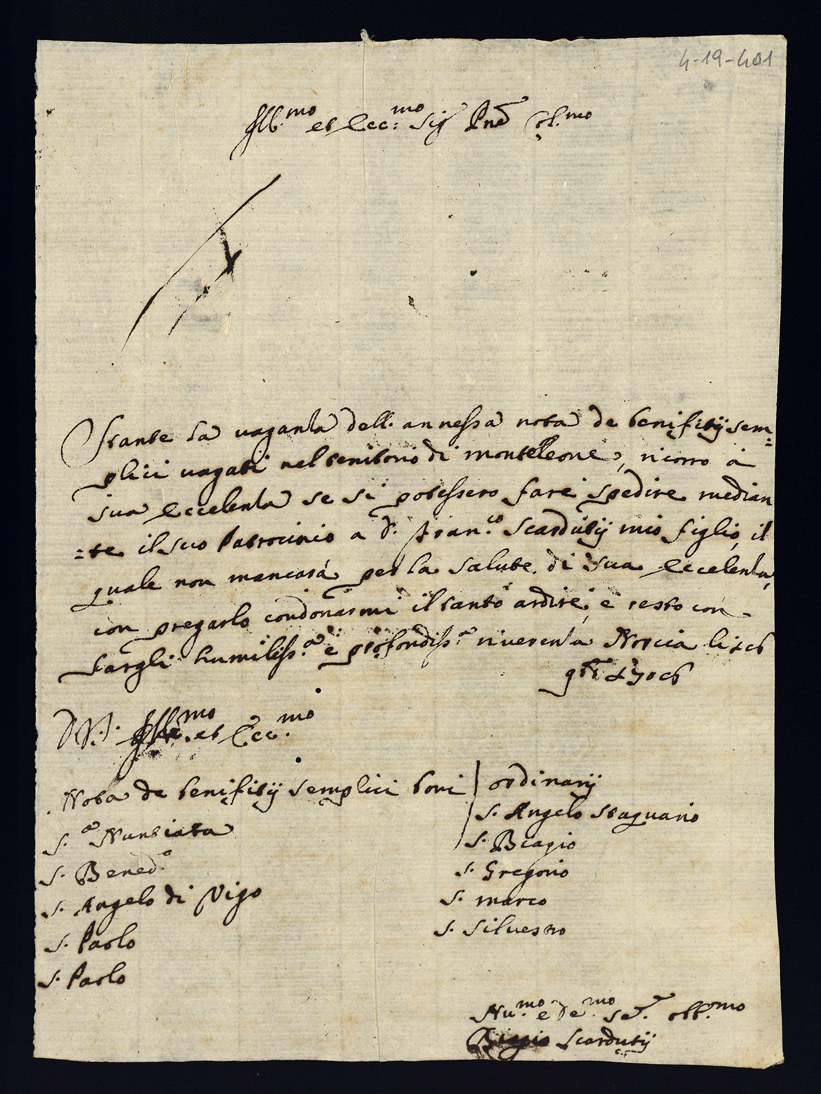 4-19-401
Ill.mo et Ecc:mo Sig Pne Col.mo
Stante la vaganza dell. annessa nota de benifitij sem=
plici vagati nel teritorio di monteleone, ricorro à
sua Eccelenza se si potessero fare spedire median
=te il suo Patrocinio a D. Fran.co Scardutij mio figlio, il
quale non mancarà per la salute di sua Eccelenza,
con pregarlo condonarmi il tanto ardire, e resto con
fargli humiliss.a è profondiss.a riverenza Norcia li
D V. S. Ill.mo et Ecc.mo
Nota de benifitij semplici boni
S.a Nuntiata
S. Bened.o
S. Angelo di Vigo
S. Paolo
S. Paolo
ordinarij
S. Angelo staguario
S. Biagio
S. Gregorio
S. marco
S. Silvestro
Hu.mo e De.mo Se.r obb.mo
Biagio Scardutij